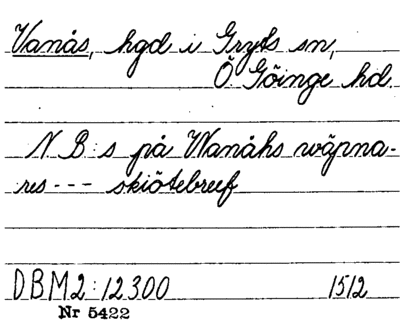 Vanås, hgd i Gryts sn,
Ö Göinge hd.
N B:s på Wanåhs wäpna-
res --- skiötebreef
DBM2:12300 1512
Nr 5422